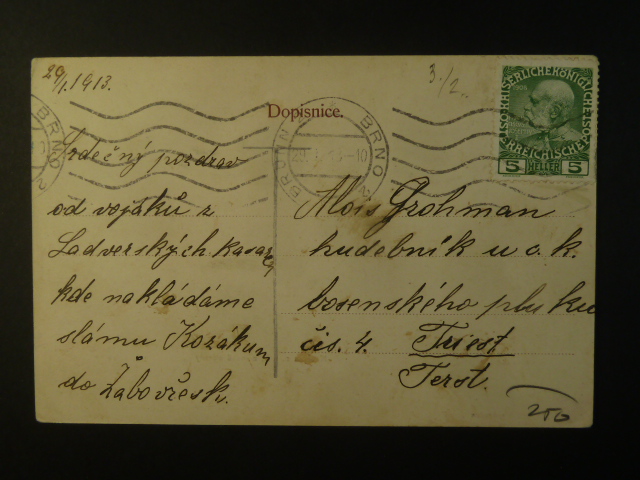 29/1. 1913.
3./2.
Dopisnice.
BRÜNN BRNO 2
BRNO 2
KAISERLICHE KÖNIGLICHE
ÖSTERREICHISCHE
5 HELLER 5
Srdečný pozdrav
od vojáků z
Ladverských kasar
kde nakládáme
slámu Kozákum
do Žabovřesk.
Alois Grohman
hudebník u c. k.
bosenského pluku
čís. 4. Triest
Terst.
250